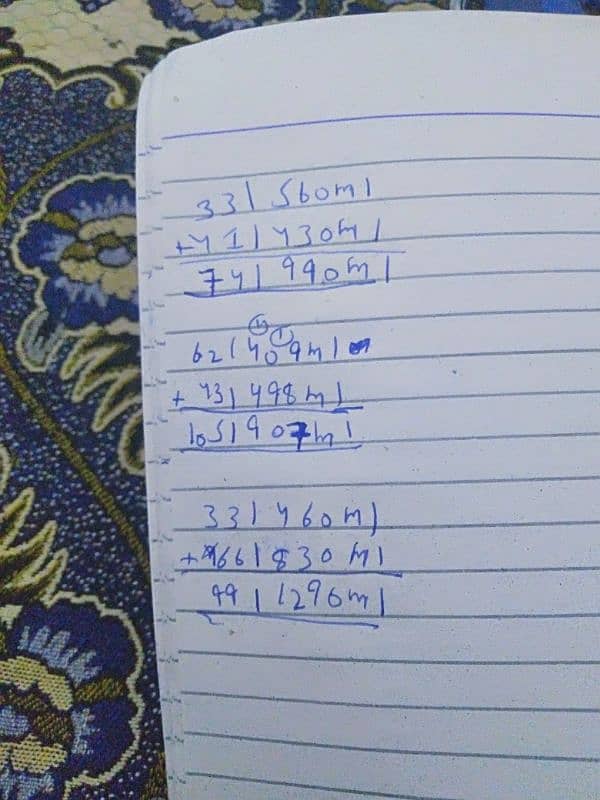 33l 560ml
+41l 430ml
74l 990ml
62l 409ml
+ 43l 498ml
105l 907ml
33l 460ml
+66l 830ml
99l 1290ml